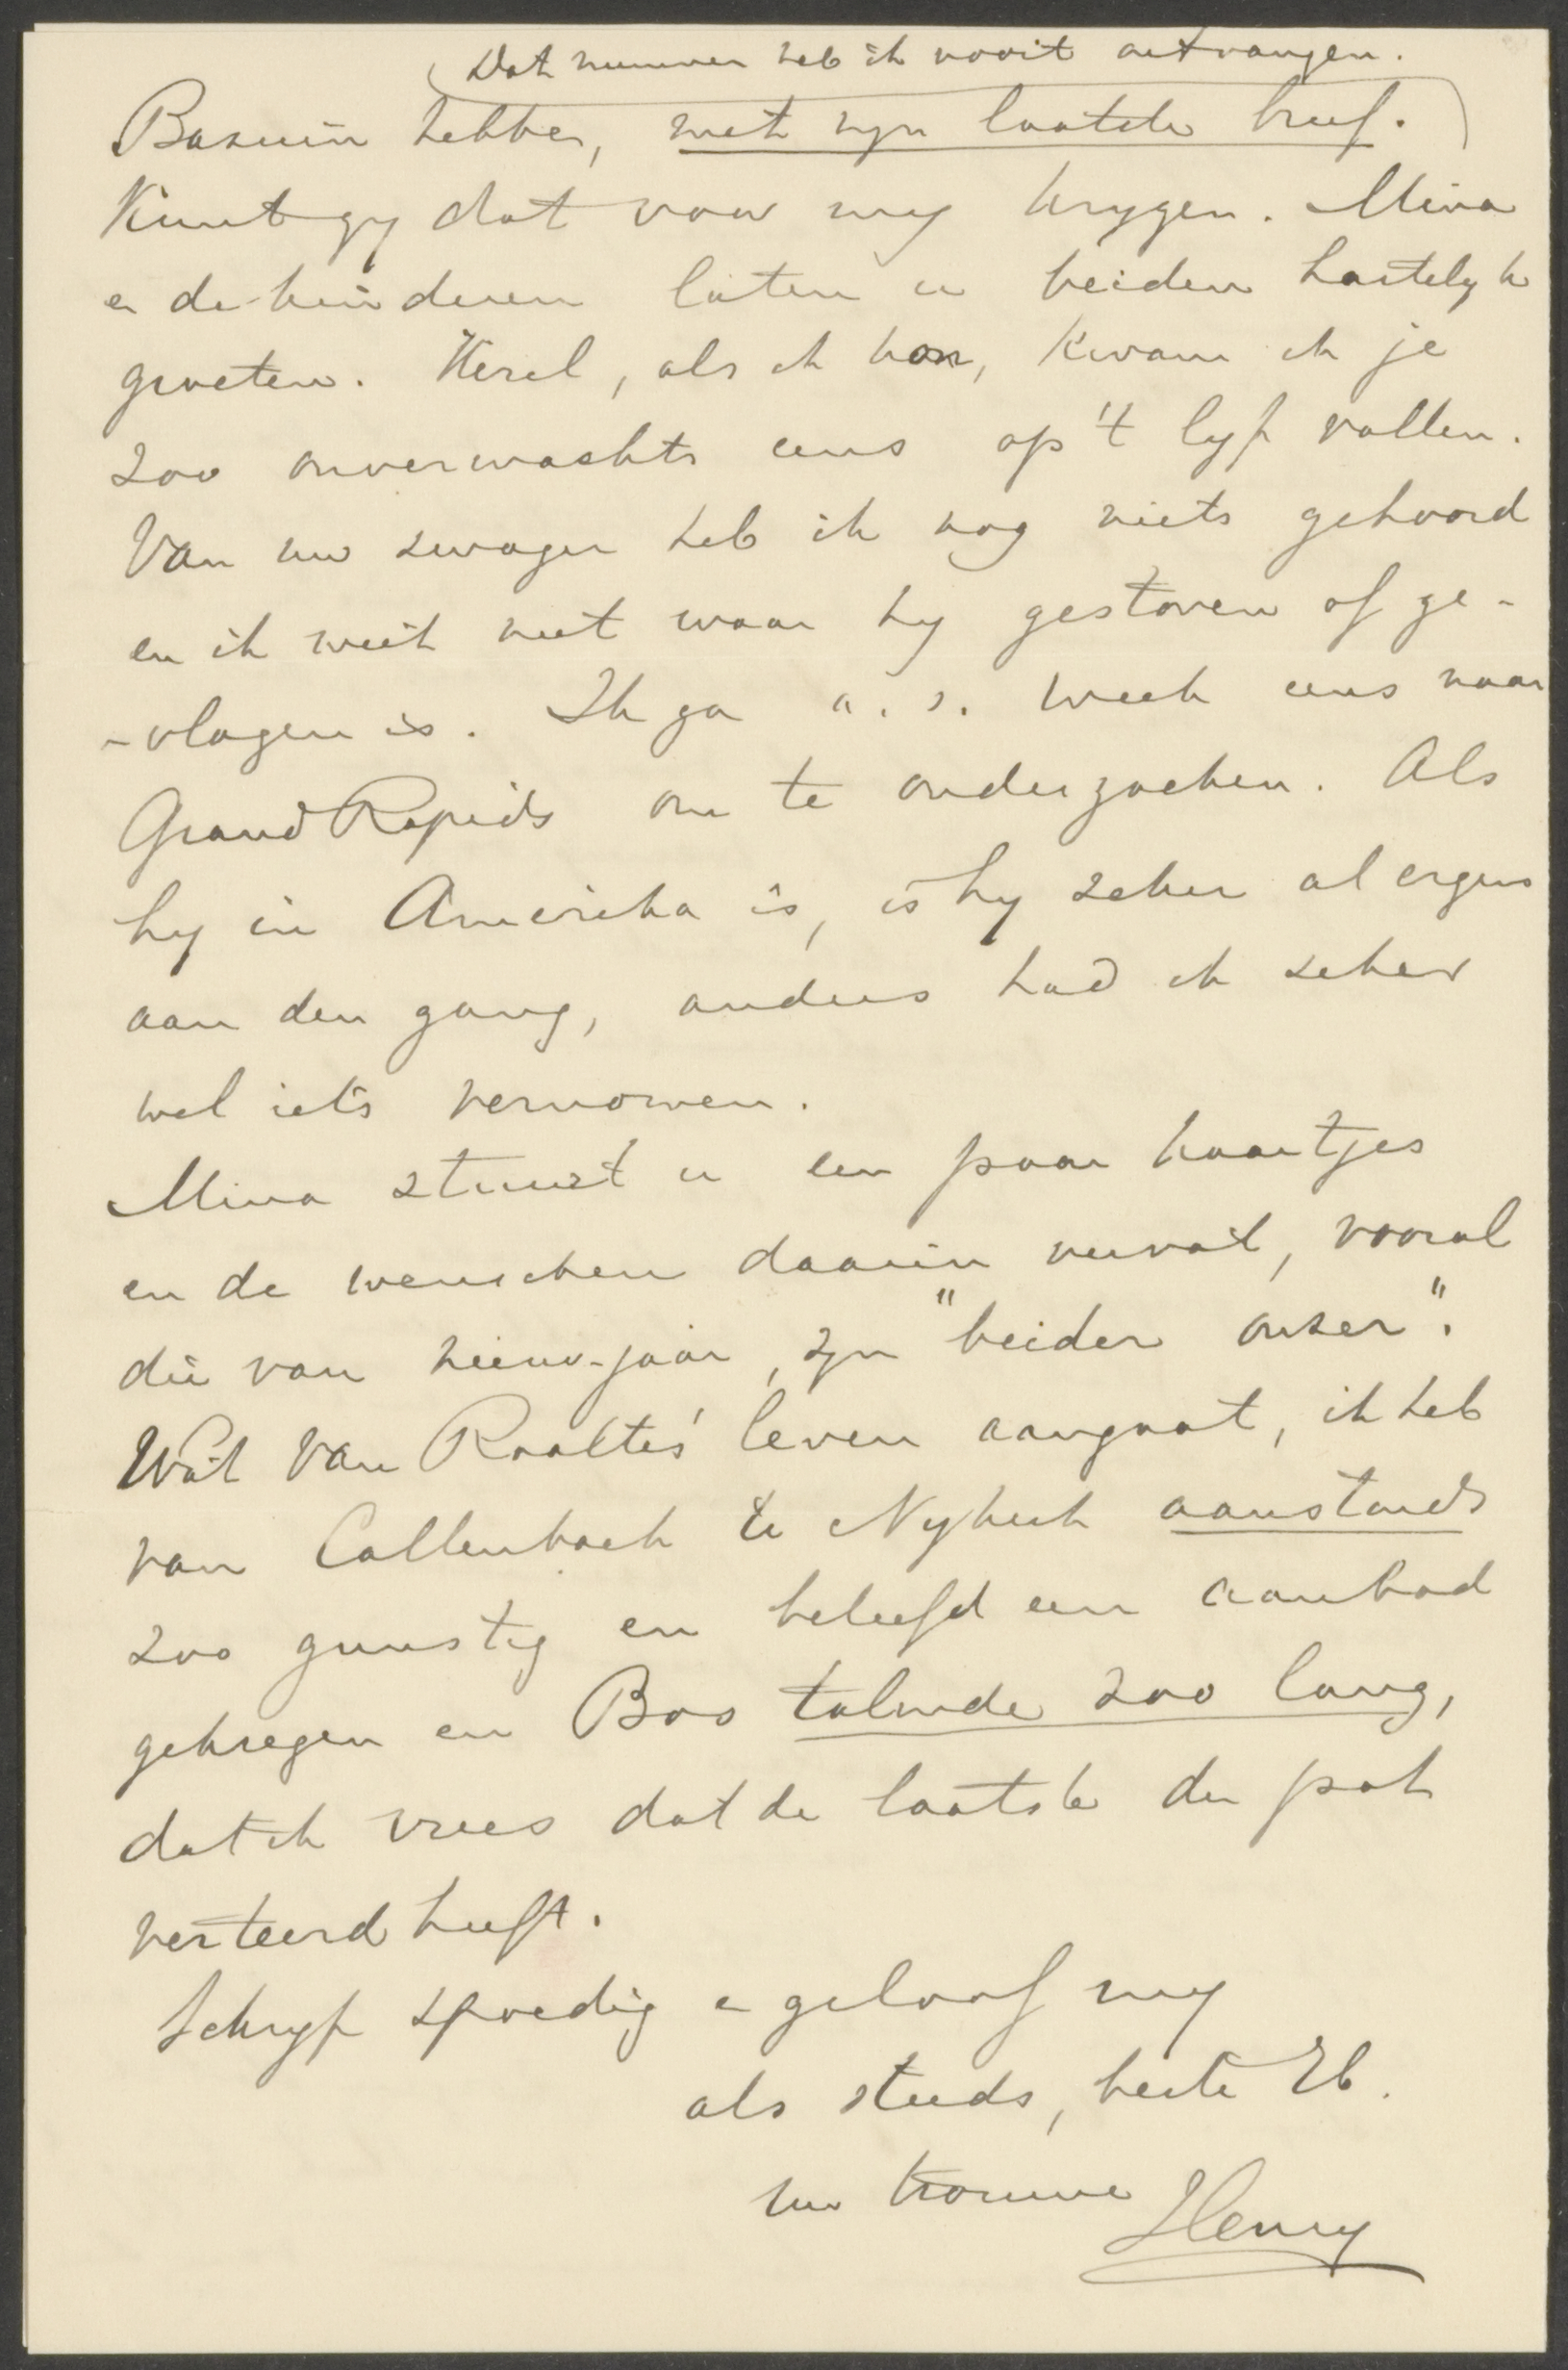 Dat nummer heb ik nooit ontvangen.
Bazuin hebben, met myn laatste brief.
Kunt gy dat voor my krygen. Mina
en de kinderen laten u beiden hartelyk
groeten. Kerel, als ik kon, kwam ik je
zoo onverwachts eens op 't lyf vallen.
Van uw zwager heb ik nog niets gehoord
en ik weet niet waar hy gestoven of ge-
-vlogen is. Ik ga a.s. week eens naar
Grand Rapids om te onderzoeken. Als
hy in Amerika is, is hy zeker al ergens
aan den gang, anders had ik zeker
wel iets vernomen.
Mina stuurt u een paar kaartjes
en de wenschen daarin vervat, vooral
die van nieuw-jaar, zyn "beider onzer".
Wat Van Raalte's leven aangaat, ik heb
van Callenbach te Nykerk aanstonds
zoo gunstig en beleefd een aanbod
gekregen en Bos talmde zoo lang,
dat ik vrees dat de laatste de pot
verteerd heeft.
Schryf spoedig en geloof my
als steeds, beste Eb.
uw trouwe Henry